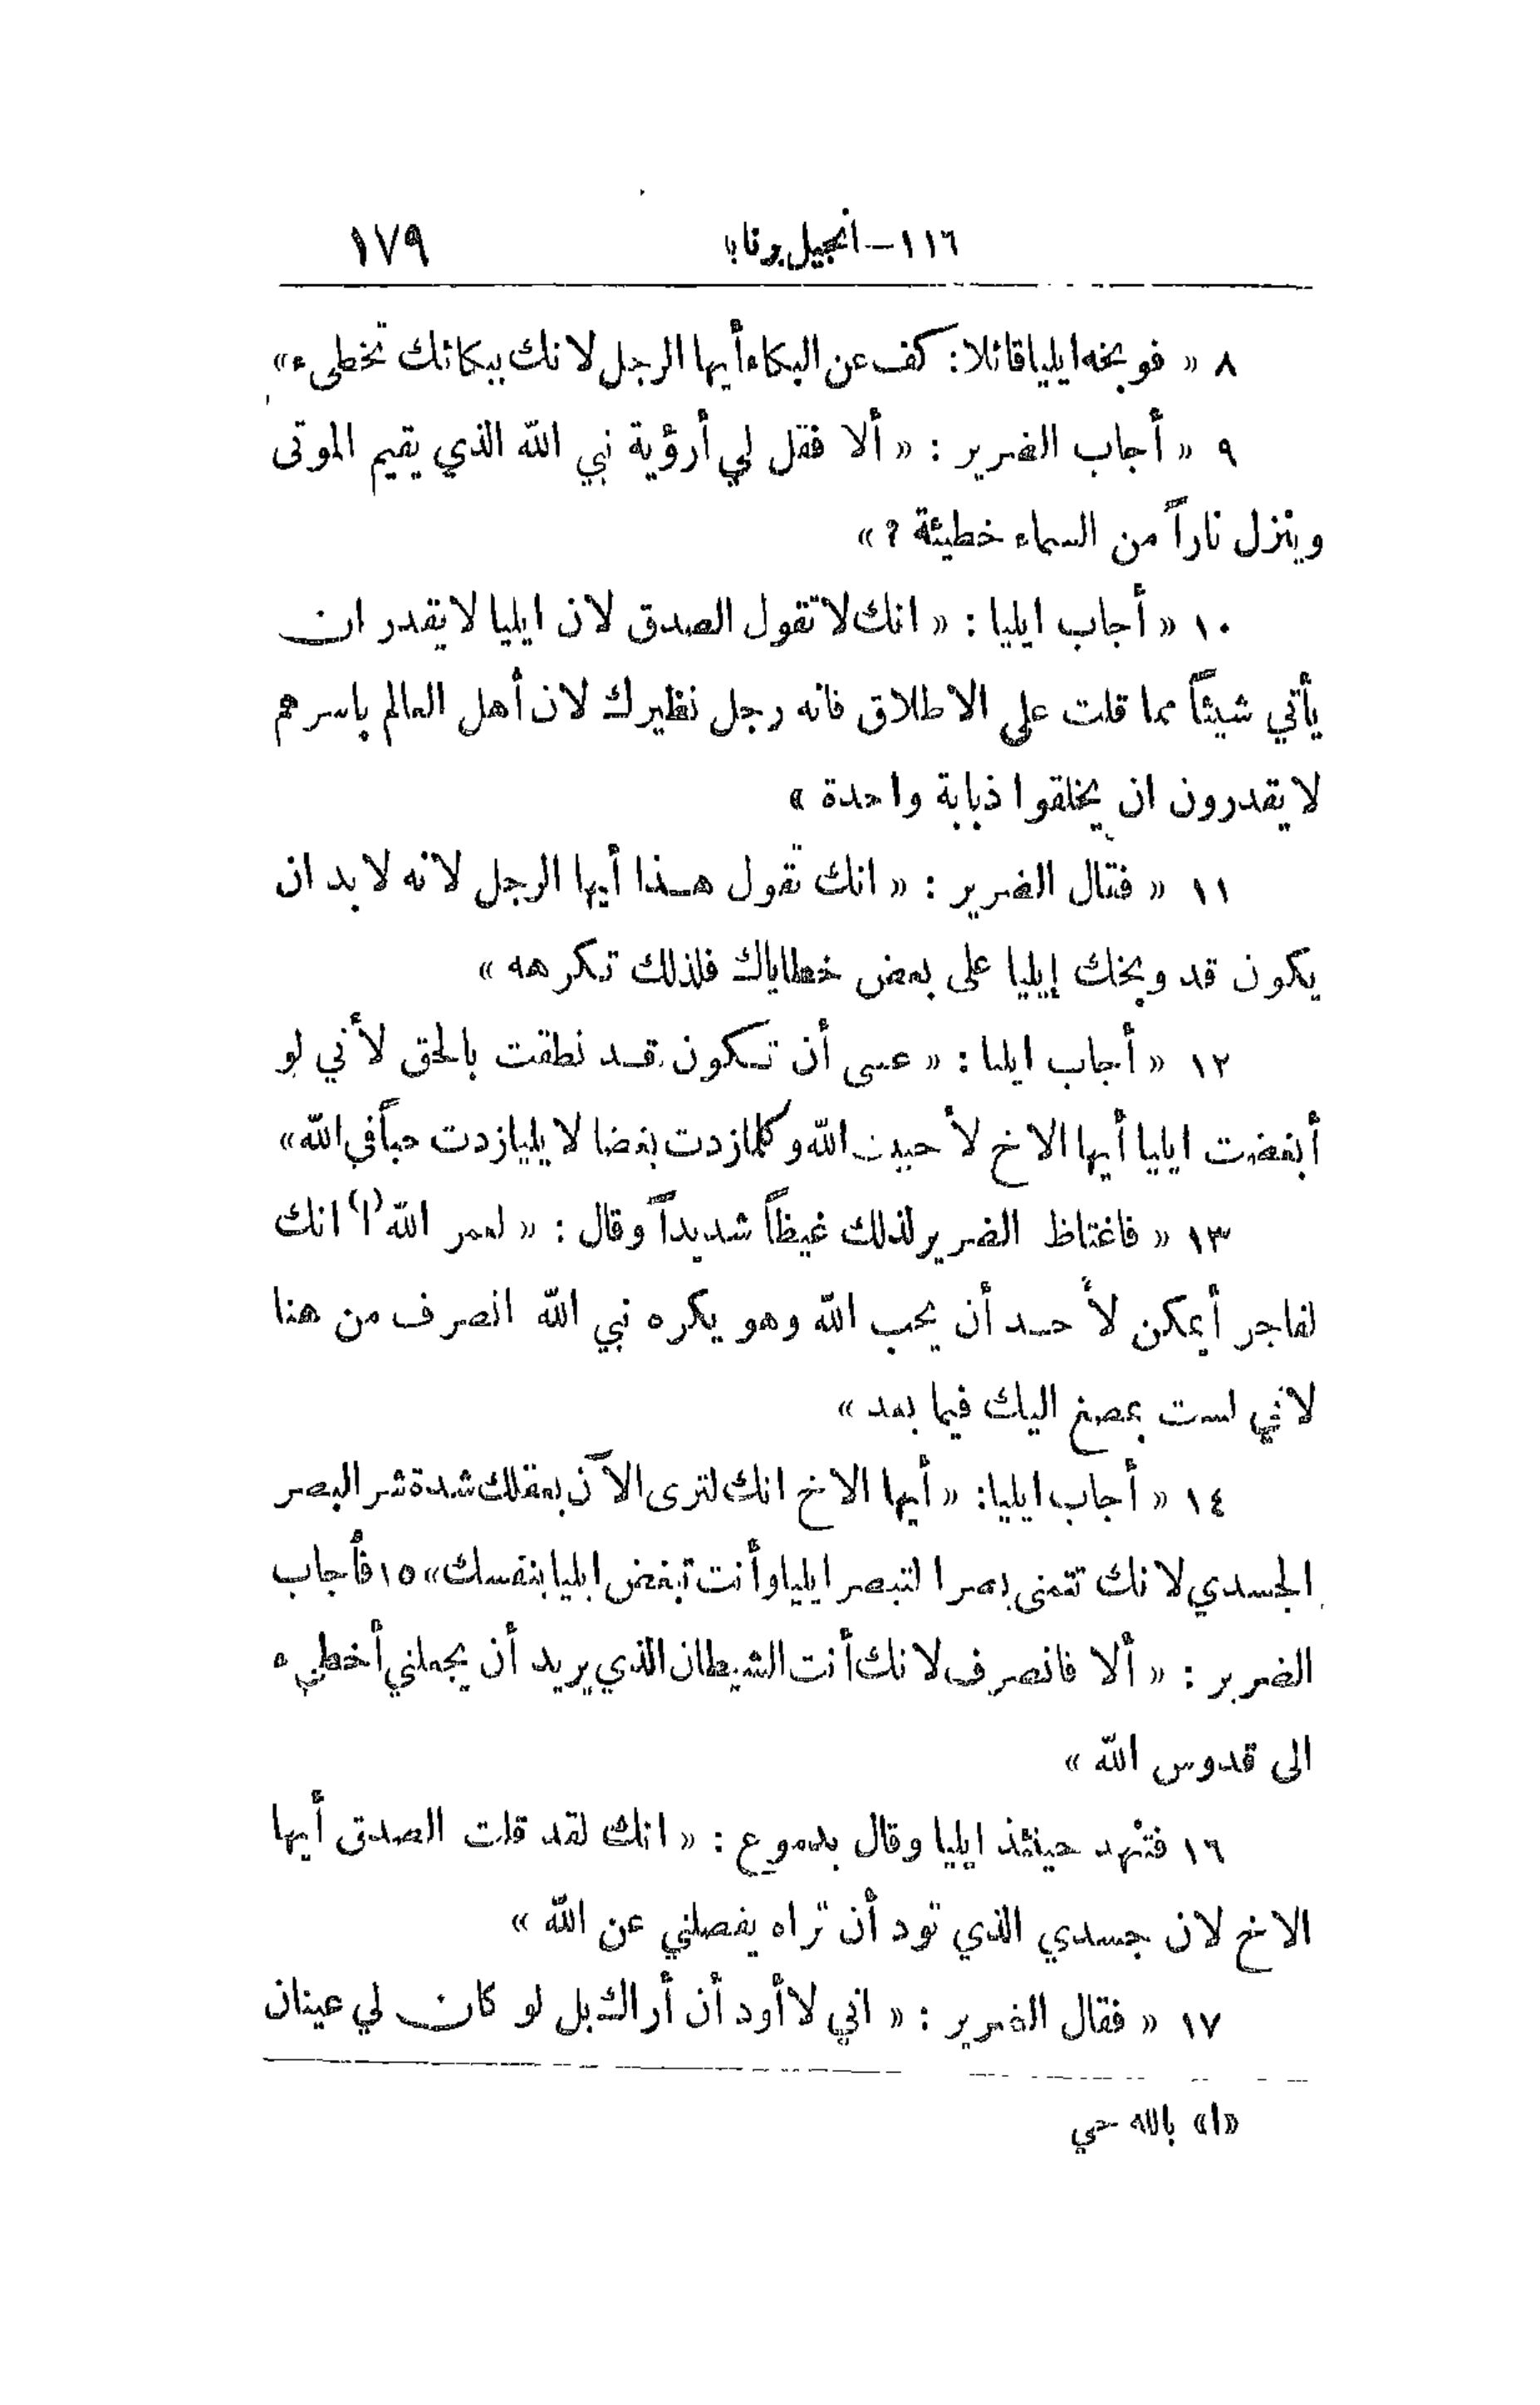 ١١٦ – انجيل برنابا ١٧٩
٨ « فوبخه ايليا قائلا : كف عن البكاء أيها الرجل لانك ببكائك تخطىء »
٩ « أجاب الضرير : « ألا فقل لي أرؤية نبي الله الذي يقيم الموتى
وينزل ناراً من السماء خطيئة ؟ »
١٠ « أجاب ايليا : « انك لا تقول الصدق لان ايليا لا يقدر ان
يأتي شيئاً مما قلت على الاطلاق فانه رجل نظيرك لان أهل العالم باسرهم
لا يقدرون ان يخلقوا ذبابة واحدة »
١١ « فقال الضرير : « انك تقول هذا أيها الرجل لانه لا بد ان
يكون قد وبخك إيليا على بعض خطاياك فلذلك تكرهه »
١٢ « أجاب ايليا : « عسى أن تكون قد نطقت بالحق لأني لو
أبغضت ايليا أيها الاخ لأحببت الله وكلما زدت بغضا لايليا زدت حباً في الله »
١٣ « فاغتاظ الضرير لذلك غيظاً شديداً وقال : « لعمر الله (١) انك
لفاجر أيمكن لأحد أن يحب الله وهو يكره نبي الله انصرف من هنا
لاني لست بمصغ اليك فيما بعد »
١٤ « أجاب ايليا : « أيها الاخ انك لترى الآن بعقلك شدة شر البصر
الجسدي لانك تتمنى بصرا لتبصر ايليا وأنت تبغض ايليا بنفسك » ١٥ فأجاب
الضرير : « ألا فانصرف لانك أنت الشيطان الذي يريد أن يجعلني أخطىء
الى قدوس الله »
١٦ فتنهد حينئذ ايليا وقال بدموع : « انك لقد قلت الصدق أيها
الاخ لان جسدي الذي تود أن تراه يفصلني عن الله »
١٧ « فقال الضرير : « اني لا أود أن أراك بل لو كان لي عينان
«١» بالله حي